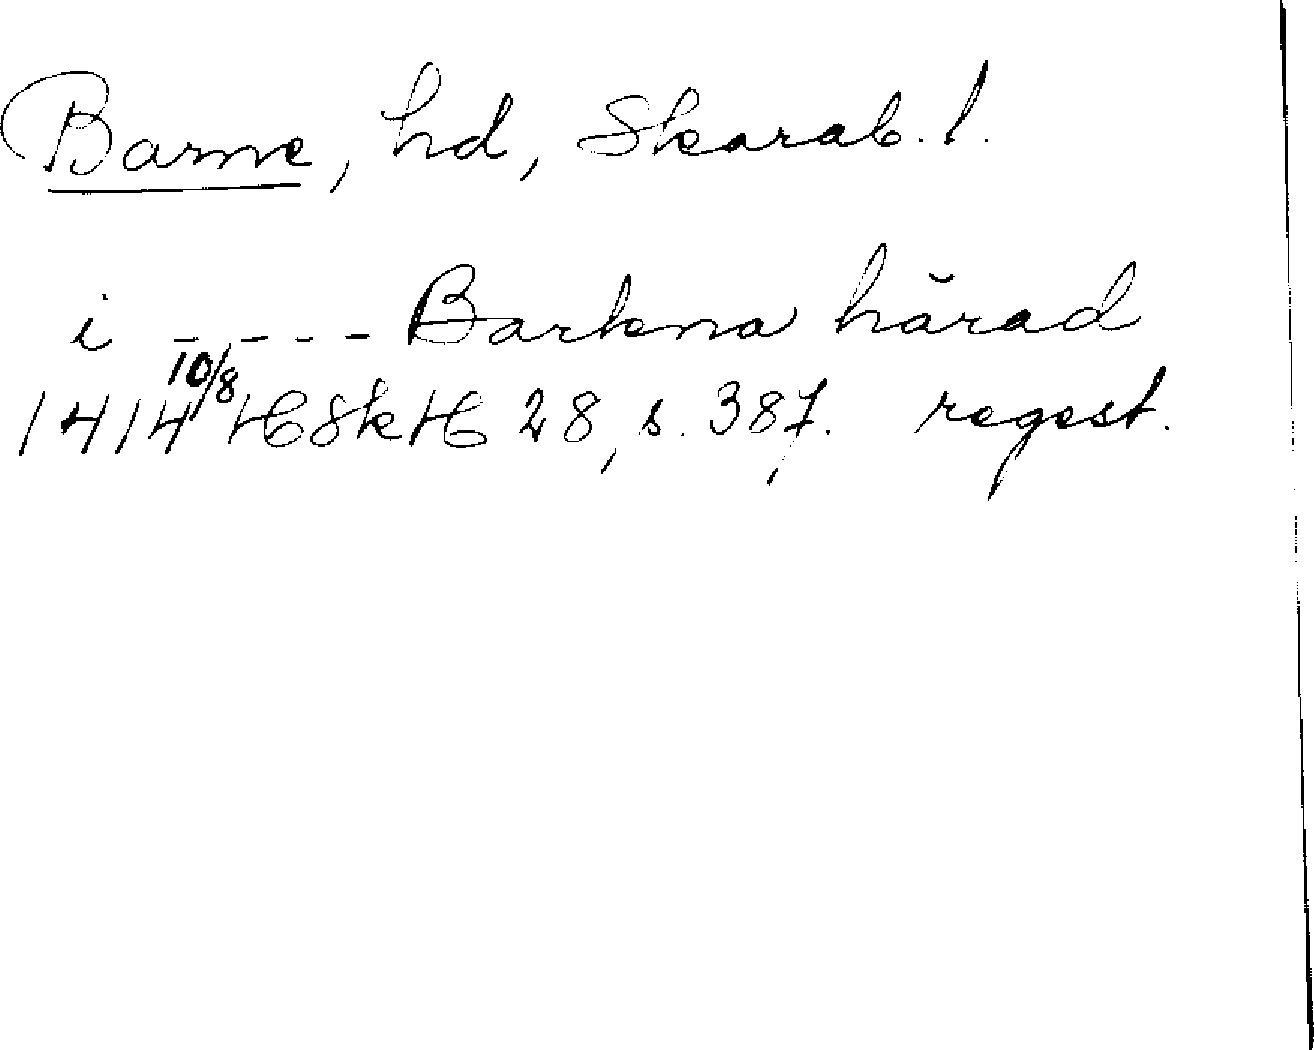 Barne, hd, Skarab. l.
i - - - - - Barkna härad
1414 10/8 HSkH 28, s. 387. regest.